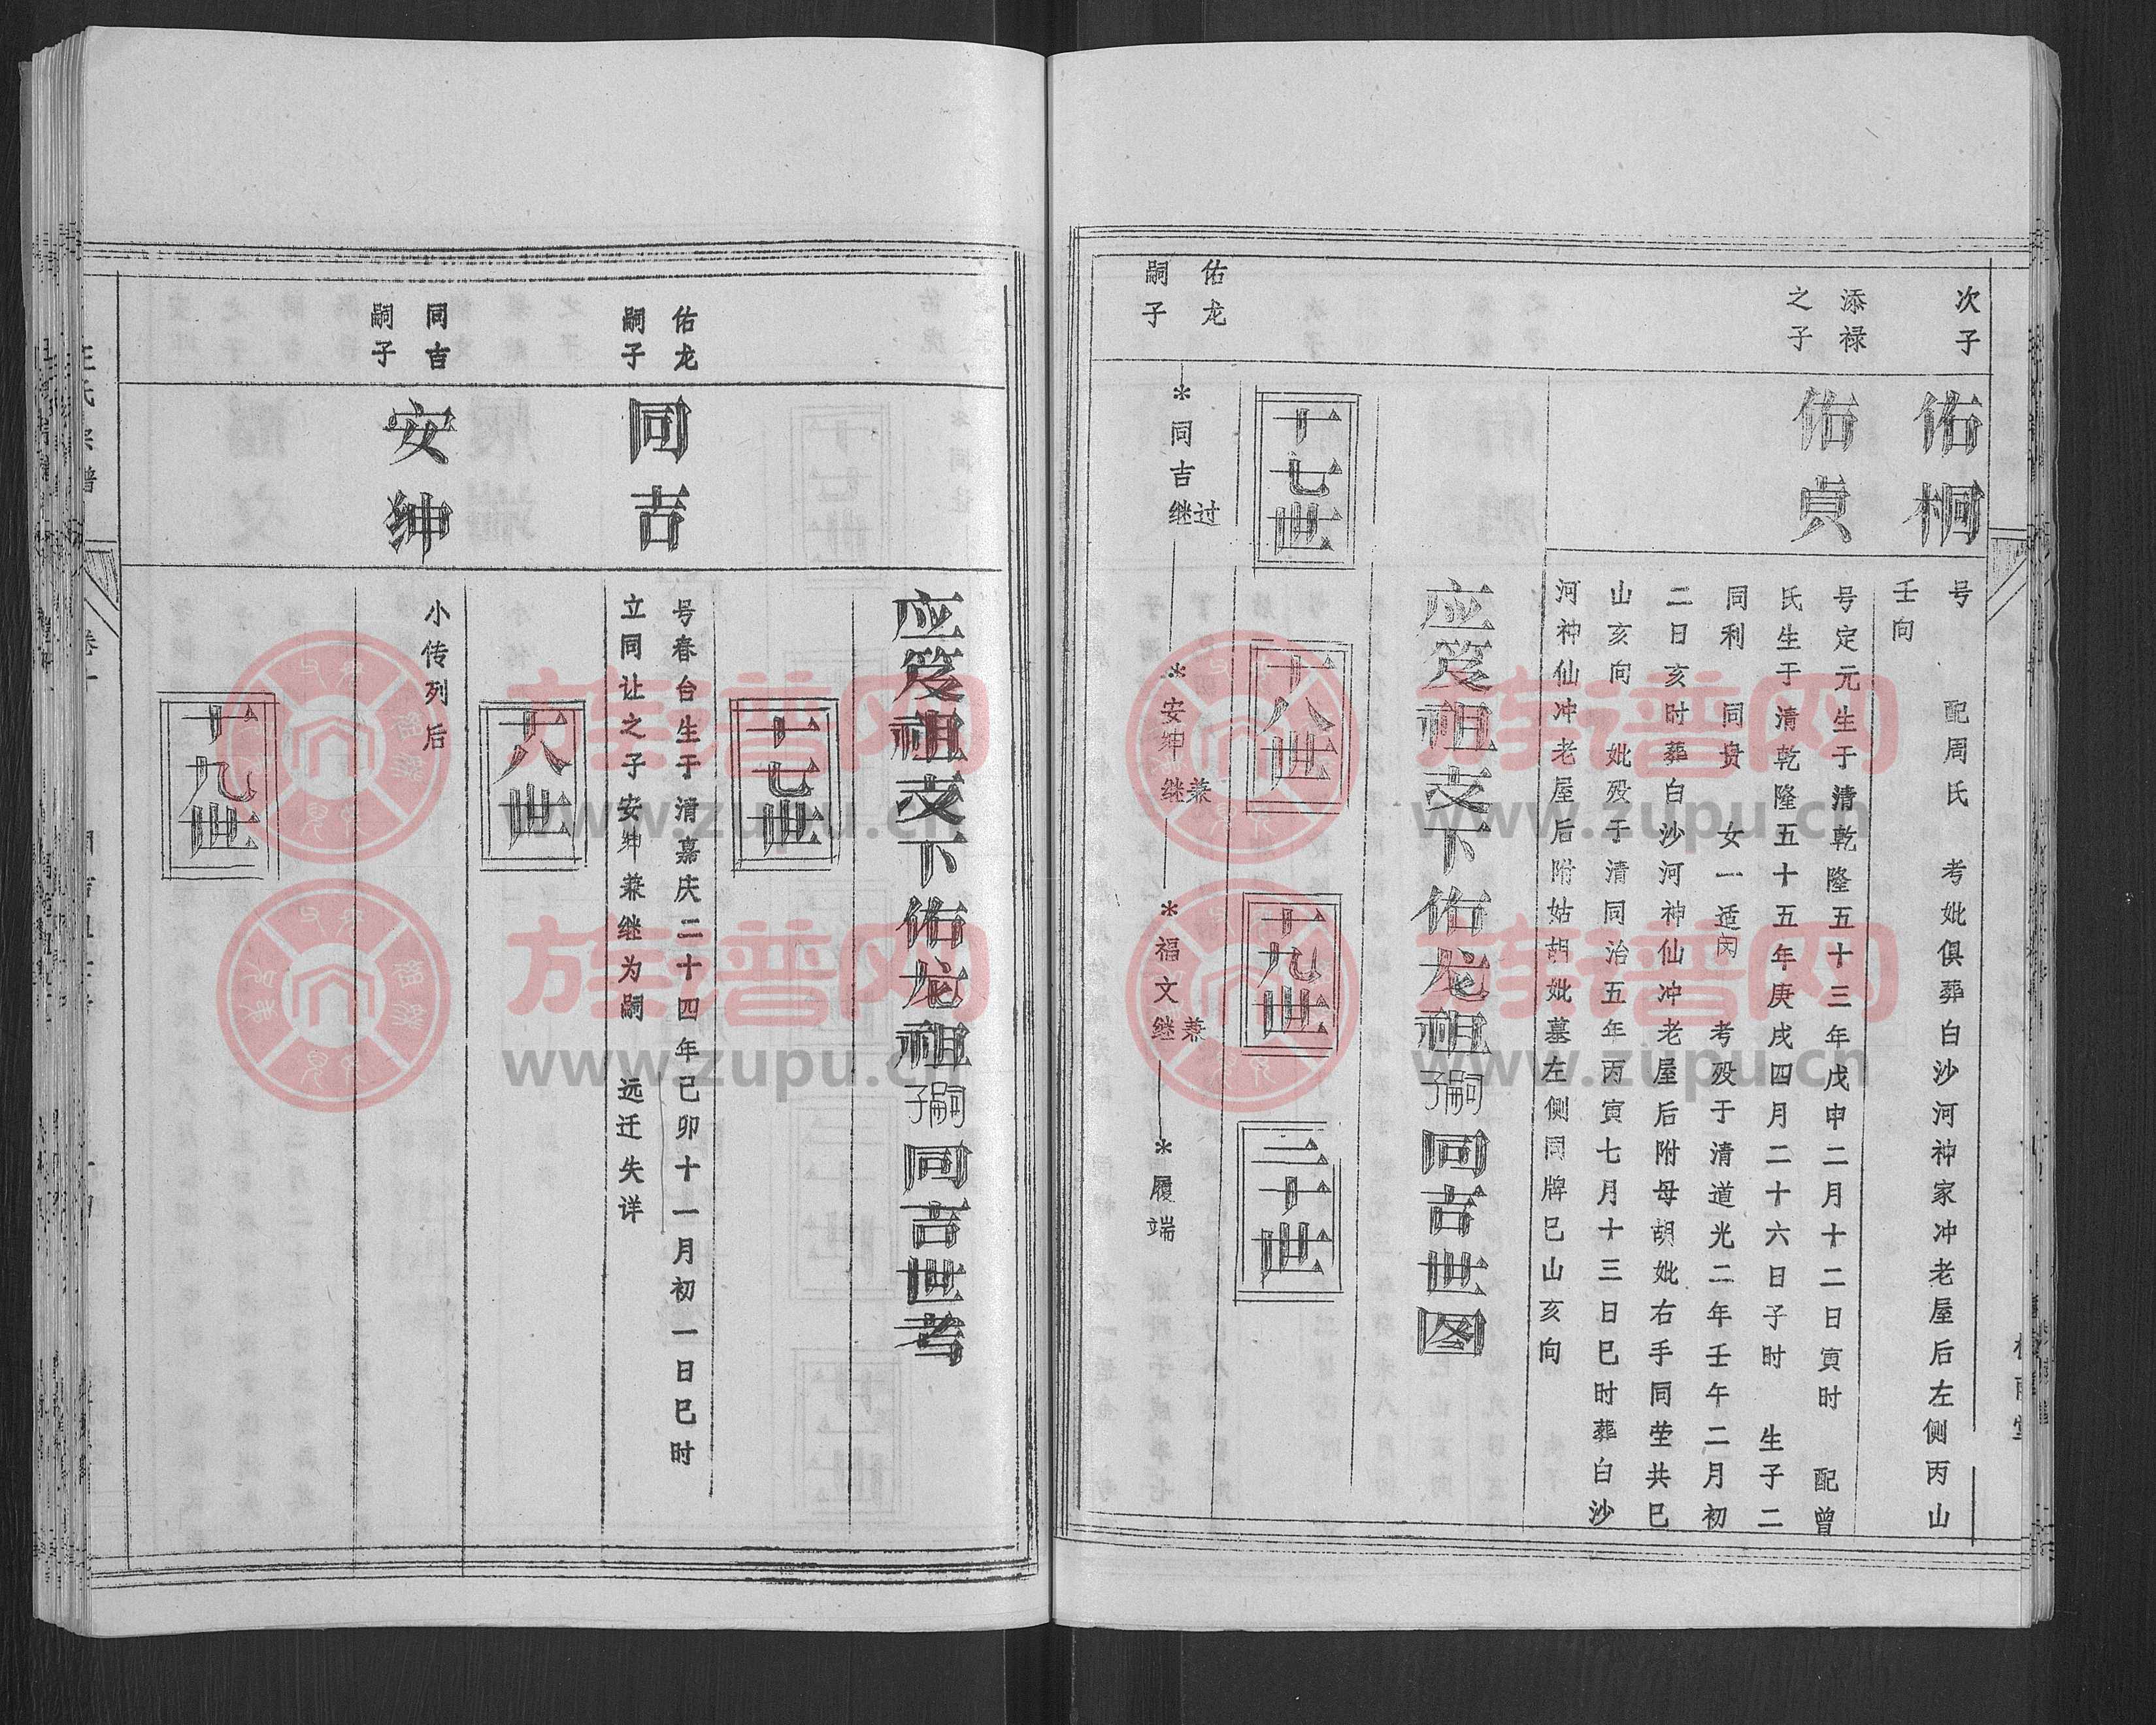 次子
佑桐
号　配周氏　考妣俱葬白沙河神家冲老屋后左侧丙山
壬向
添禄
之子
佑贞
号定元生于清乾隆五十三年戊申二月十二日寅时　配曾
氏生于清乾隆五十五年庚戌四月二十六日子时　生子二
同利　同贵　女一适闵　考殁于清道光二年壬午二月初
二日亥时葬白沙河神仙冲老屋后附母胡妣右手同茔共巳
山亥向　妣殁于清同治五年丙寅七月十三日巳时葬白沙
河神仙冲老屋后附姑胡妣墓左侧同牌巳山亥向
应笈祖支下佑龙祖嗣子同吉世图
十七世
十八世
十九世
二十世
佑龙
嗣子
*同吉过继
*安绅兼继
*福文兼继
*履端
应笈祖支下佑龙祖嗣子同吉世考
十七世
佑龙
嗣子
同吉
号春台生于清嘉庆二十四年己卯十一月初一日巳时
立同让之子安绅兼继为嗣　远迁失详
十八世
同吉
嗣子
安绅
小传列后
十九世
氏宗谱
族谱网
www.zupu.cn
族谱网
www.zupu.cn
族谱网
www.zupu.cn
族谱网
www.zupu.cn